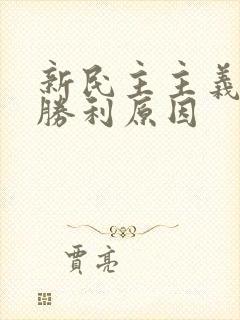 新民主主義
勝利原因
賈亮